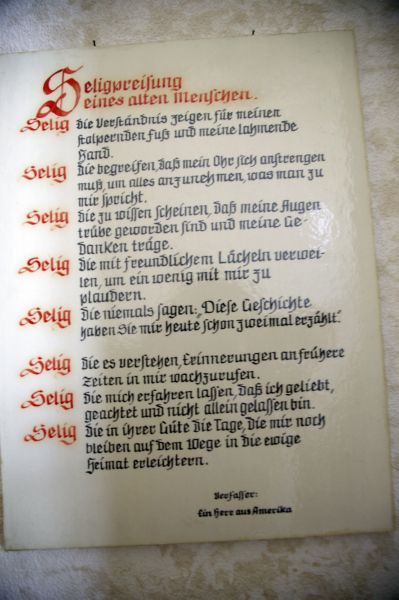 Seligpreisung
eines alten Menschen.
Selig die Verständnis zeigen für meinen
stolpernden Fuß und meine lahmende
Hand.
Selig die begreifen, daß mein Ohr sich anstrengen
muß, um alles anzunehmen, was man zu
mir spricht.
Selig die zu wissen scheinen, daß meine Augen
trübe geworden sind und meine Ge-
danken träge.
Selig die mit freundlichem Lächeln verwei-
len, um ein wenig mit mir zu
plaudern.
Selig die niemals sagen: „Diese Geschichte
haben Sie mir heute schon zweimal erzählt."
Selig die es verstehen, Erinnerungen an frühere
Zeiten in mir wachzurufen.
Selig die mich erfahren lassen, daß ich geliebt,
geachtet und nicht allein gelassen bin.
Selig die in ihrer Güte die Tage, die mir noch
bleiben auf dem Wege in die ewige
Heimat erleichtern.
Verfasser:
Ein Herr aus Amerika